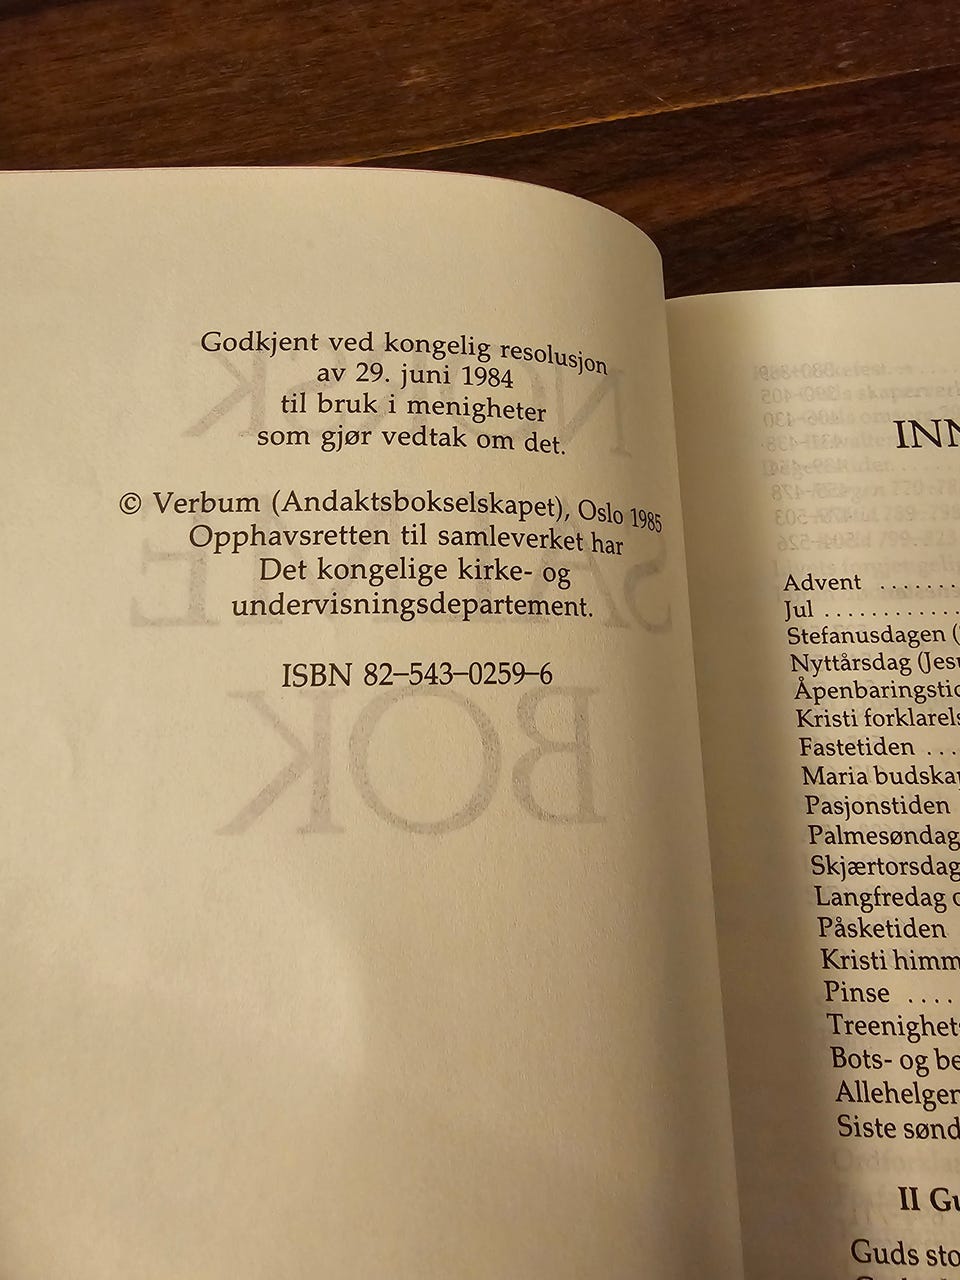 Godkjent ved kongelig resolusjon
av 29. juni 1984
til bruk i menigheter
som gjør vedtak om det.
© Verbum (Andaktsbokselskapet), Oslo 1985
Opphavsretten til samleverket har
Det kongelige kirke- og
undervisningsdepartement.
ISBN 82–543–0259–6
NORSK
SALME
BOK
INN
Advent ........
Jul ............
Stefanusdagen (
Nyttårsdag (Jesu
Åpenbaringstid
Kristi forklarels
Fastetiden ...
Maria budskap
Pasjonstiden
Palmesøndag
Skjærtorsdag
Langfredag o
Påsketiden
Kristi himm
Pinse ....
Treenighet
Bots- og be
Allehelgen
Siste sønd
II Gu
Guds sto